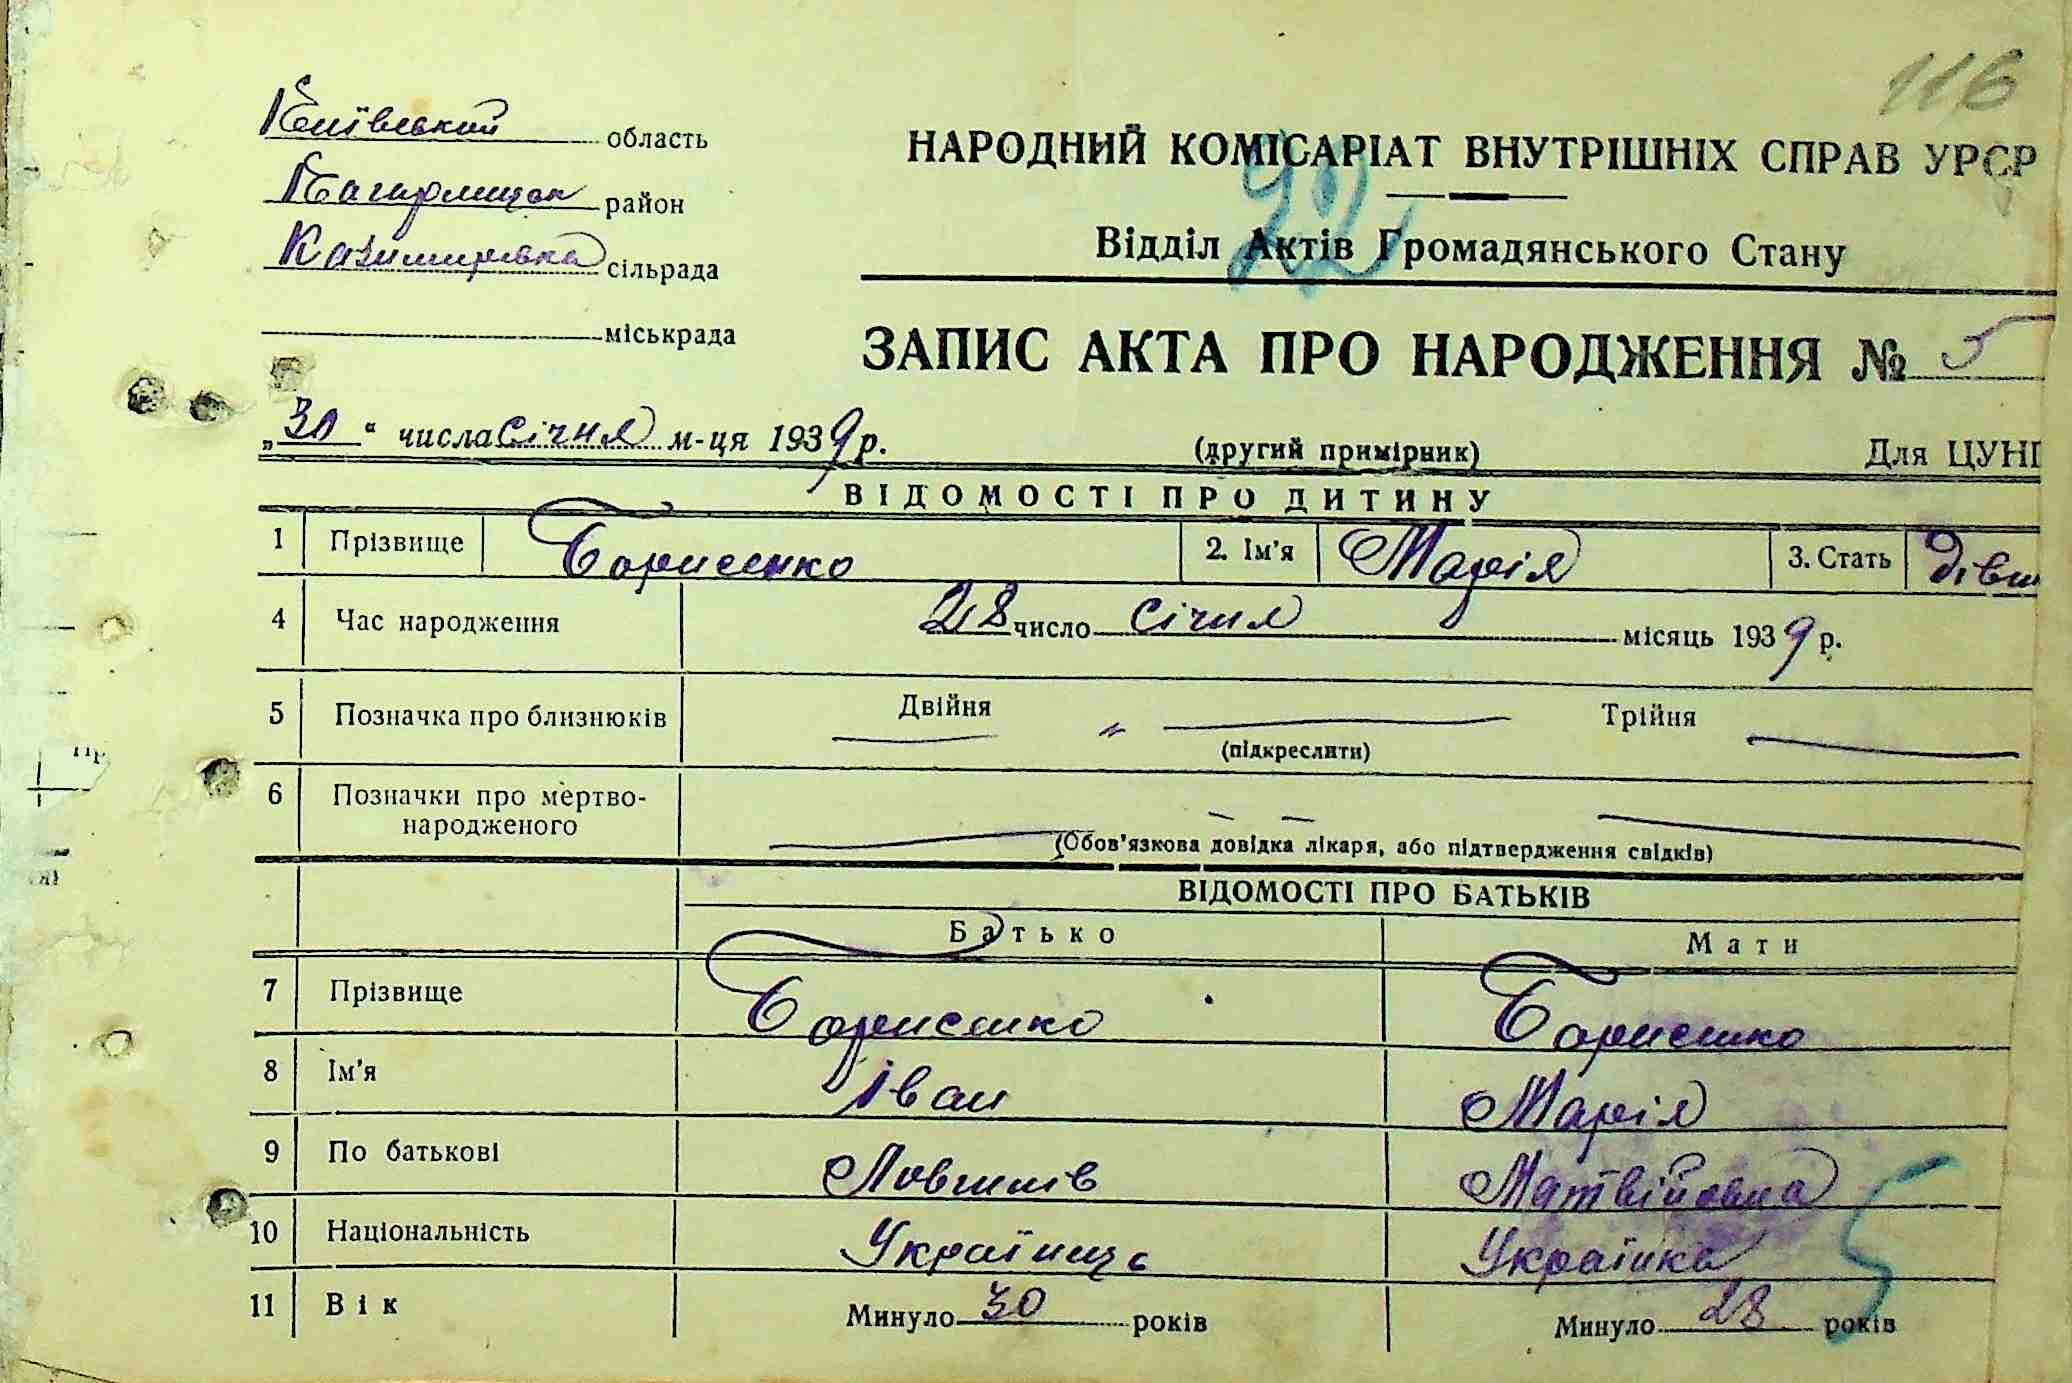 116
Київський область
Кагарлицьк район
Казимирівка сільрада
міськрада
НАРОДНИЙ КОМІСАРІАТ ВНУТРІШНІХ СПРАВ УРСР
22
Відділ Актів Громадянського Стану
ЗАПИС АКТА ПРО НАРОДЖЕННЯ № 5
„30“ числа січня м-ця 1939 р. (другий примірник) Для ЦУНГ
ВІДОМОСТІ ПРО ДИТИНУ
1 Прізвище Борисенко 2. Ім'я Марія 3. Стать дівч
4 Час народження 28 число січня місяць 1939 р.
5 Позначка про близнюків Двійня Трійня
(підкреслити)
6 Позначки про мертво-
народженого
(Обов'язкова довідка лікаря, або підтвердження свідків)
ВІДОМОСТІ ПРО БАТЬКІВ
Батько Мати
7 Прізвище Борисенко Борисенко
8 Ім'я Іван Марія
9 По батькові Матвійовна
10 Національність Українць Українка
11 Вік Минуло 30 років Минуло 28 років